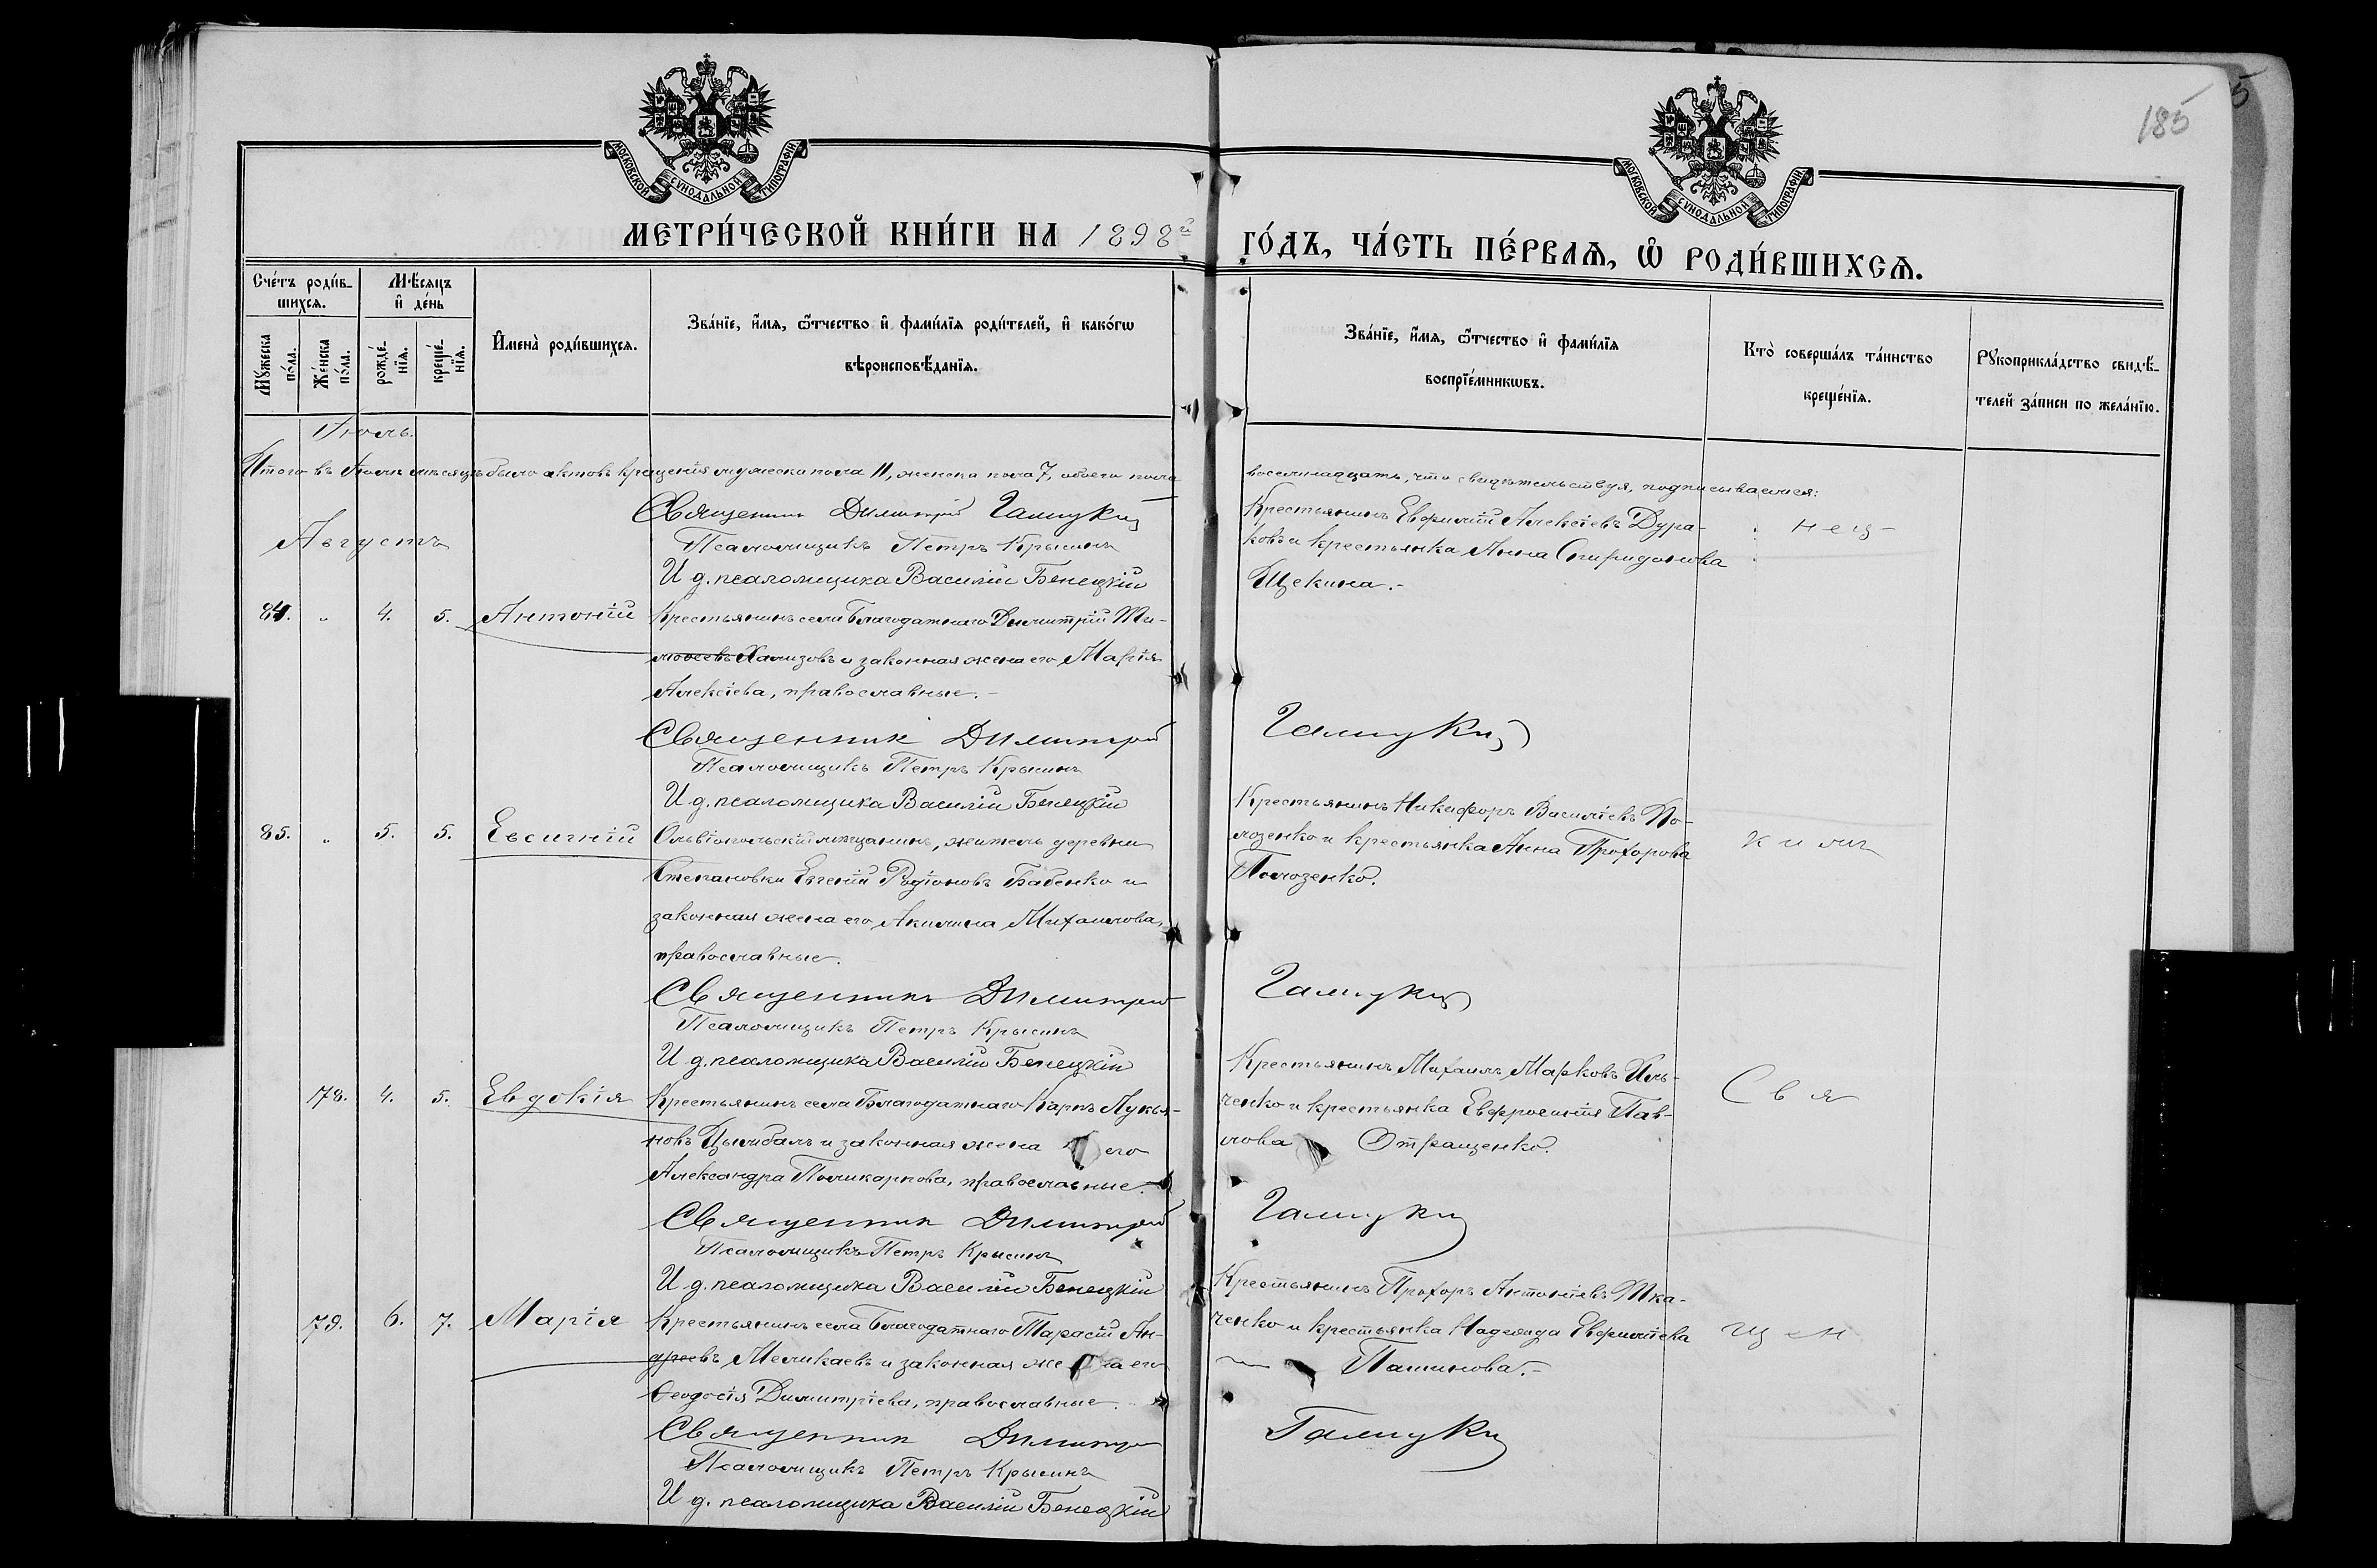 185
МОСКОВСКОЙ СУНОДАЛЬНОЙ ТИПОГРАФІИ
МОСКОВСКОЙ СУНОДАЛЬНОЙ ТИПОГРАФІИ
МЕТРИ́ЧЕСКОЙ КНИ́ГИ НА 1898й
ГО́ДЪ, ЧА́СТЬ ПЕ́РВАѦ, Ѽ РОДИ́ВШИХСѦ.
Сче́тъ роди́в-
шихсѧ.
Мѣсѧцъ
и҆ де́нь
Мꙋ́жеска по́ла.
Же́нска по́ла.
рожде́-нїѧ.
креще́-нїѧ.
И҆мена̀ роди́вшихсѧ.
Зва́нїе, и҆́мѧ, ѻ҆́тчество и҆ фами́лїѧ роди́телей, и҆ како́гѡ
вѣроисповѣ́данїѧ.
Зва́нїе, и҆́мѧ, ѻ҆́тчество и҆ фами́лїѧ
воспрїе́мникѡвъ.
Кто̀ соверша́лъ та́инство
креще́нїѧ.
Рꙋкоприкла́дство свидѣ́-
телей за́писи по жела́нїю.
Іюль.
Итого въ Іюлѣ мѣсяцѣ было актовъ крещенія мужеска пола 11, женска пола 7, обоего пола
восемнадцать, что свидѣтельствуя, подписываемся:
Священникъ Димитрій Галицкій
Августъ
Псаломщикъ Петръ Крысинъ
И д. псаломщика Василій Бенецкій
84. " 4. 5. Антоній Крестьянинъ села Благодатнаго Димитрій Ти-
мовеевъ Хализовъ и законная жена его Марія
Алексіева, православные.-
Крестьянинъ Евфимій Алексіевъ Дура-
ковъ и крестьянка Анна Спиридонова
Щекина.-
нец-
Священник Димитрій Галицкій
Псаломщикъ Петръ Крысинъ
И д. псаломщика Василій Бенецкій
85. " 5. 5. Евсигній Ольвіопольскій мѣщанинъ, житель деревни
Степановки Евгеній Родіоновъ Бабенко и
законная жена его Акилина Михаилова,
православные.
Крестьянинъ Никифоръ Василіевъ По-
лозенко и крестьянка Анна Прохорова
Полозенко.
Священникъ Димитрій Галицкій
Псаломщикъ Петръ Крысинъ
И д. псаломщика Василій Бенецкій
78. 4. 5. Евдокія Крестьянинъ села Благодатнаго Карпъ Лукья-
новъ Цымбалъ и законная жена его
Александра Поликарпова, православные.-
Крестьянинъ Михаилъ Марковъ Иль-
ченко и крестьянка Евфросинія Пав-
лова Отращенко.
Свя
Священник Димитрій Галицкій
Псаломщикъ Петръ Крысинъ
И д. псаломщика Василій Бенецкій
79. 6. 7. Марія Крестьянинъ села Благодатнаго Тарасій Ан-
дреевъ Меликаевъ и законная жена его
Ѳеодосія Димитріева, православные.
Крестьянинъ Прохоръ Антоніевъ Тка-
ченко и крестьянка Надежда Евфиміева
Пашинова.-
щен
Священник Димитрій Галицкій
Псаломщикъ Петръ Крысинъ
И д. псаломщика Василій Бенецкій